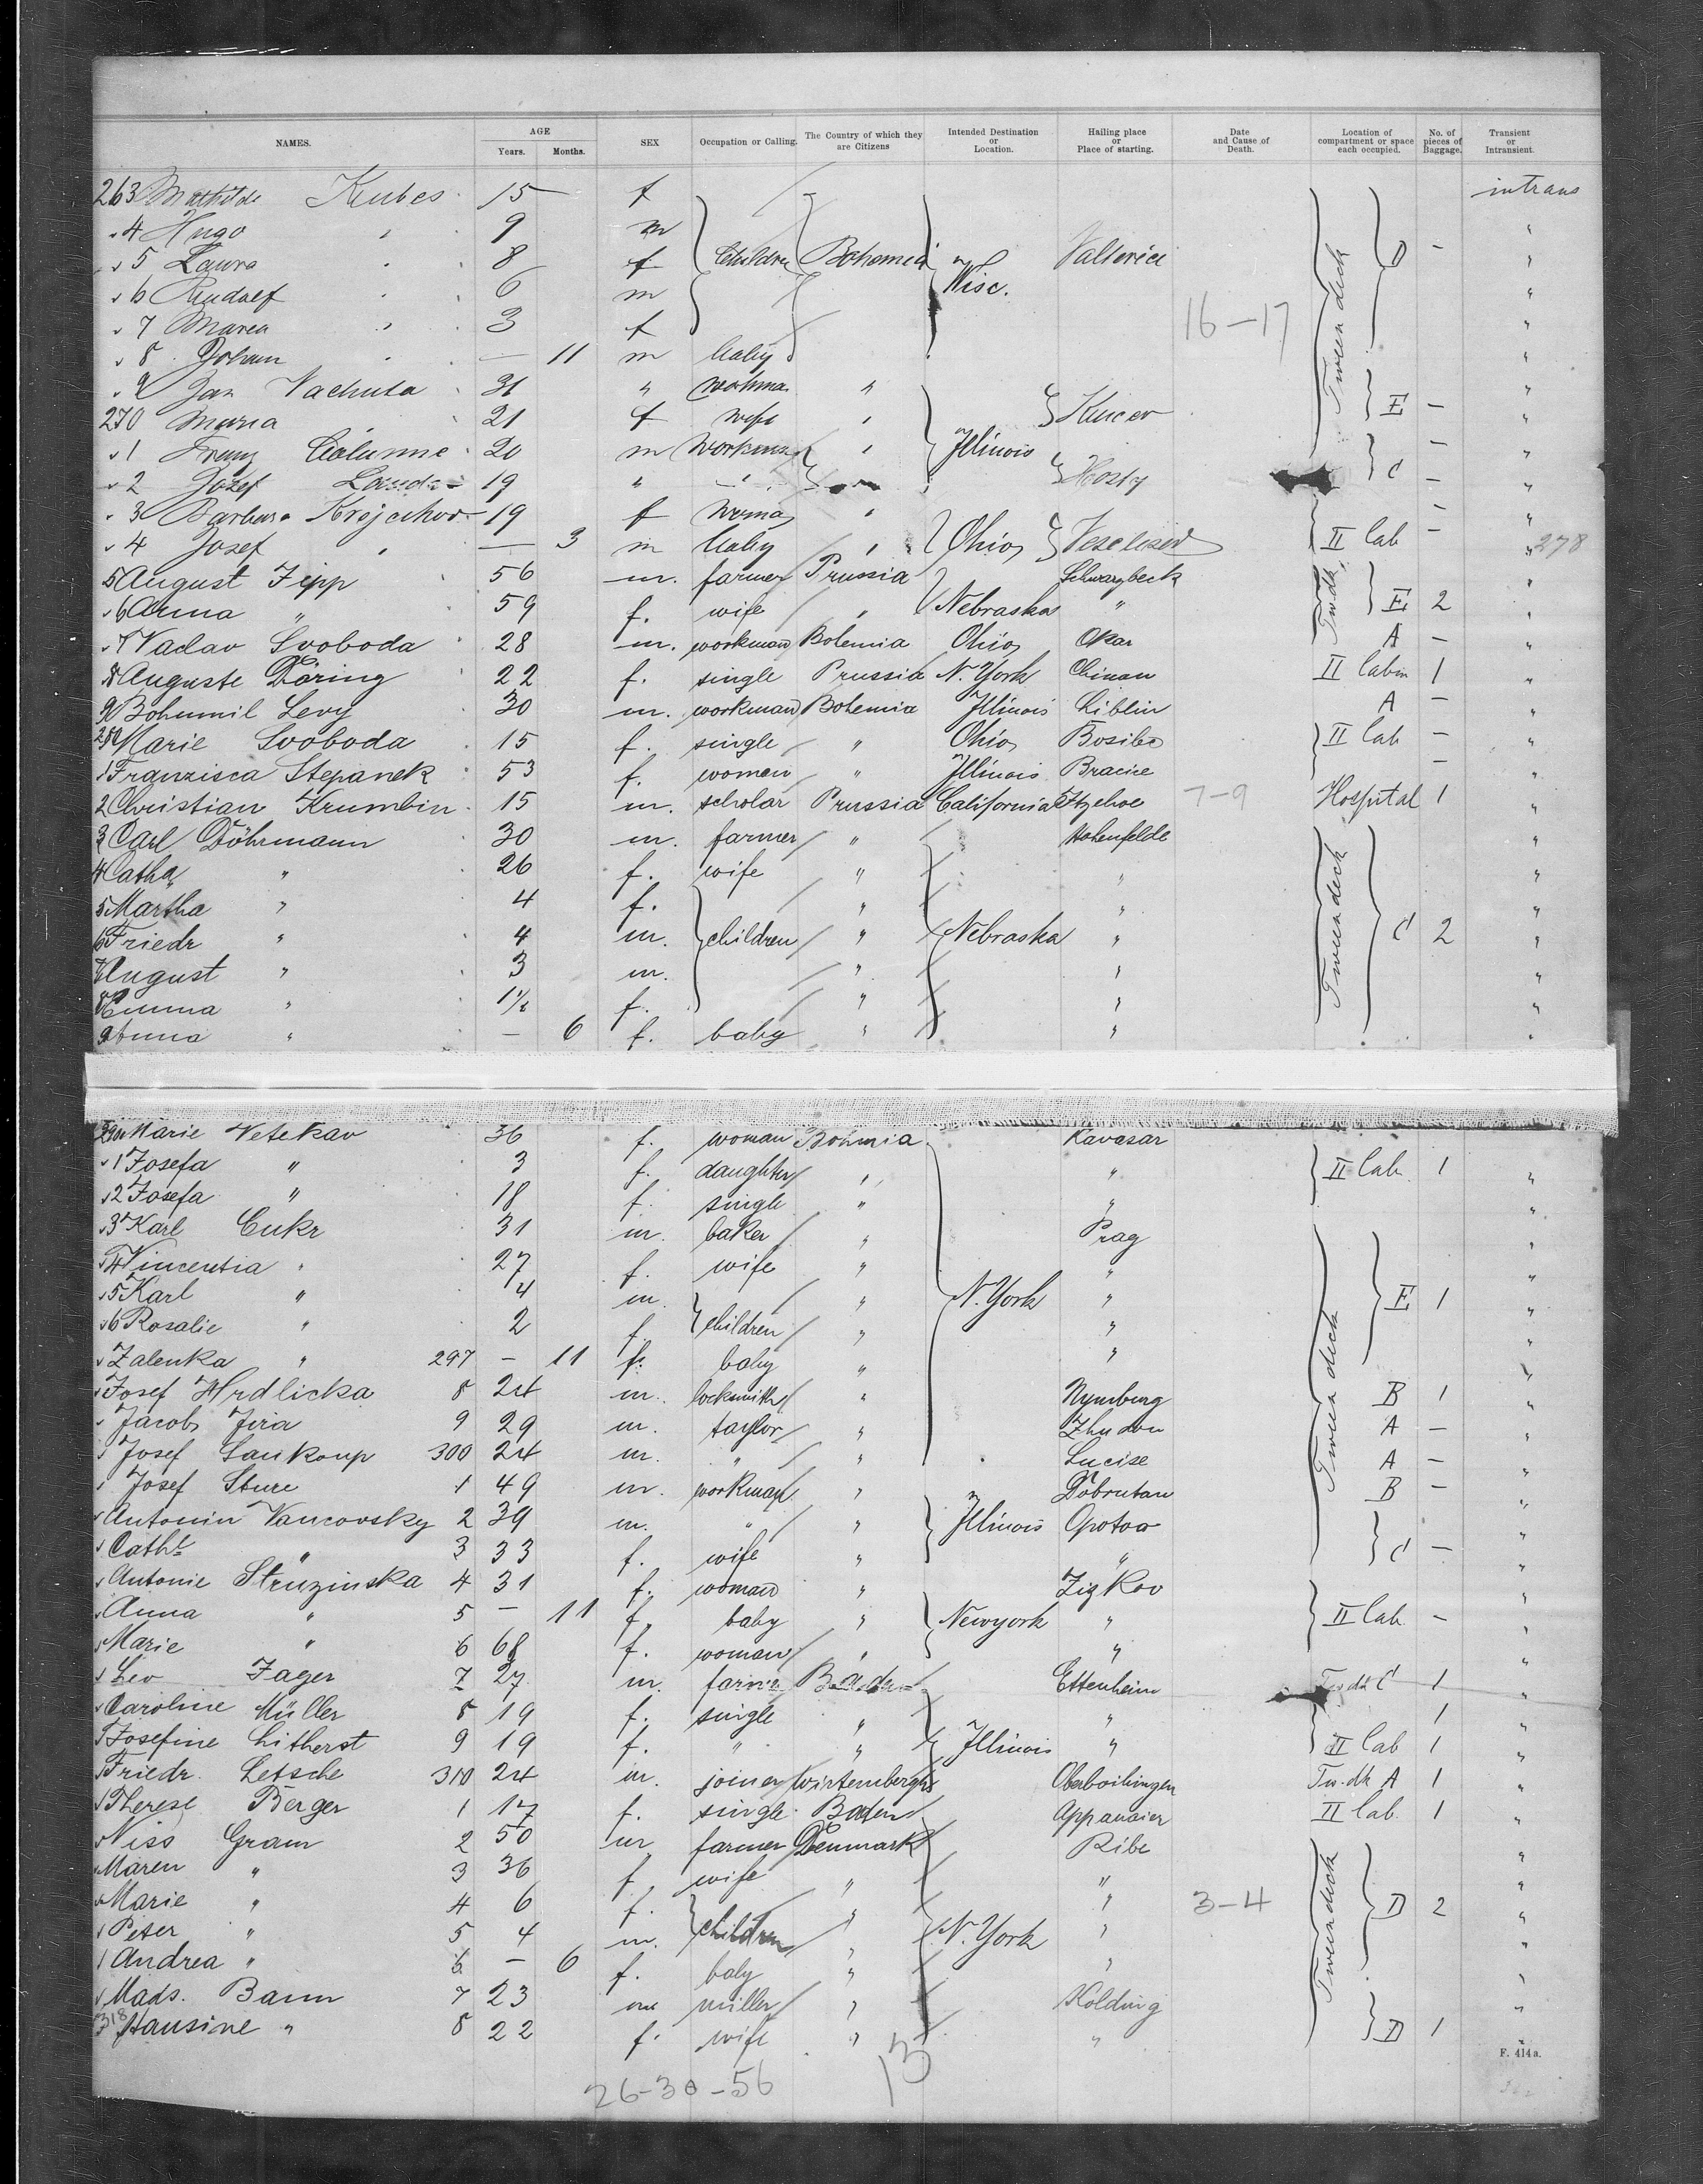 NAMES. AGE Years. Months. SEX Occupation or Calling. The Country of which they are Citizens Intended Destination or Location. Hailing place or Place of starting. Date and Cause of Death. Location of compartment or space each occupied. No. of pieces of Baggage. Transient or Intransient.
263 Mathilde Kubes 15 f intrans
4 Hugo " 9 m "
5 Laura " 8 f Children Bohemia Wisc. D - "
6 Rudolf " 6 m "
7 Marea " 3 f 16-17 "
8 Johan " — 11 m baby Tween deck "
9 Jan Vachuta 31 " workma "
270 Maria " 21 f wife " Kucer E - "
1 Franz 20 m workman " Illinois - "
2 Josef 19 " " Hosty C - "
3 Barbara 19 f woma " "
4 Josef " — 3 m baby " Ohio II Cab - " 278
5 August Jipp 56 m. farmer Prussia Schwarzbeck "
6 Anna " 59 f. wife " Nebraska " Tw.dk. E 2 "
7 Vaclav Svoboda 28 m. workman Bohemia Ohio A - "
8 Auguste Döring 22 f. single Prussia N. York Chinau II Cabin 1 "
9 Bohumil Levy 30 m. workman Bohemia Illinois Liblin A - "
280 Marie Svoboda 15 f. single " Ohio Bosilec II Cab - "
1 Franzisca Stepanek 53 f. women " Illinois - "
2 Christian Krumbin 15 m. scholar Prussia California Itzehoe 7-9 Hospital 1 "
3 Carl Döhrmann 30 m. farmer " Hohenfelde "
4 Catha " 26 f. wife " " "
5 Martha " 4 f. " " "
6 Friedr " 4 m. children " Nebraska " Tween deck C 2 "
7 August " 3 m. " " "
8 Emma " 1½ f. " " "
9 Anna " — 6 f. baby " " "
290 Marie Vetekav 36 f. woman Böhmia Kavasar
1 Josefa " 3 f. daughter " " II Cab. 1 "
2 Josefa " 18 f. single " " "
3 Karl Cukr 31 m. baker " Prag "
4 Vincentia " 27 f. wife " " "
5 Karl " 4 m. " N. York " E 1 "
6 Rosalie " 2 f. children " " "
Zalenka " 297 — 11 f. baby " " Tween deck "
Josef Hrdlicka 8 24 m. locksmith " Nymburg B 1 "
Jacob Jira 9 29 m. taylor " A - "
Josef Saukoup 300 24 m. " " Lucise A - "
Josef Sture 1 49 m. workman " Dobrutan B - "
Antonin Vancovsky 2 39 m. " " Illinois Opotoa "
Cathe " 3 33 f. wife " " C - "
Antonie Struzinska 4 31 f. woman " Zizkov "
Anna " 5 — 11 f. baby " Newyork " II Cab. - "
Marie " 6 68 f. woman " " "
Leo Jager 7 27 m. farmer Baden Ettenheim Tw.dk C 1 "
Caroline Müller 8 19 f. single " " 1 "
Josefine Litherst 9 19 f. " " Illinois " II Cab 1 "
Friedr. Letsche 310 24 m. joiner Wirtembergh Oberboihingen Tw.dk A 1 "
Therese Berger 1 17 f. single Baden Appanaier II Cab. 1 "
Niss Gram 2 50 m farmer Denmark Ribe "
Maren " 3 36 f. wife " " "
Marie " 4 6 f. " " 3-4 D 2 "
Peter " 5 4 m. children " N. York " Tween deck "
Andrea " 6 — 6 f. baby " " "
Mads. Bann 7 23 m miller " Kolding "
318 Hansine " 8 22 f. wife " " D 1 "
F. 414a.
26-30-56 13